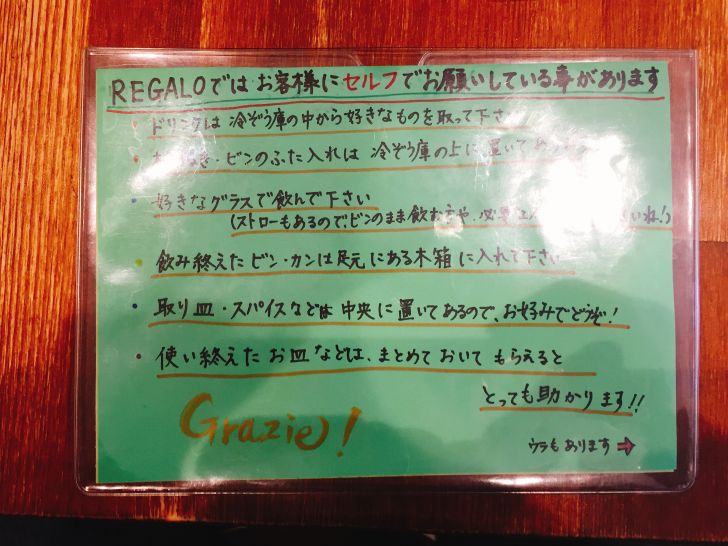 REGALOではお客様にセルフでお願いしている事があります
・ドリンクは 冷ぞう庫の中から好きなものを取って下さ
・ビンのふた入れは 冷ぞう庫の上に置いて
・好きなグラスで飲んで下さい
(ストローもあるので、ビンのまま飲む方や、必要 いね!)
・飲み終えた ビン・カンは足元にある木箱に入れて下さい
・取り皿・スパイスなどは 中央に置いてあるので、お好みでどうぞ!
・使い終えた お皿などは、まとめておいて もらえると
とっても助かります!!
Grazie!
ウラもあります→